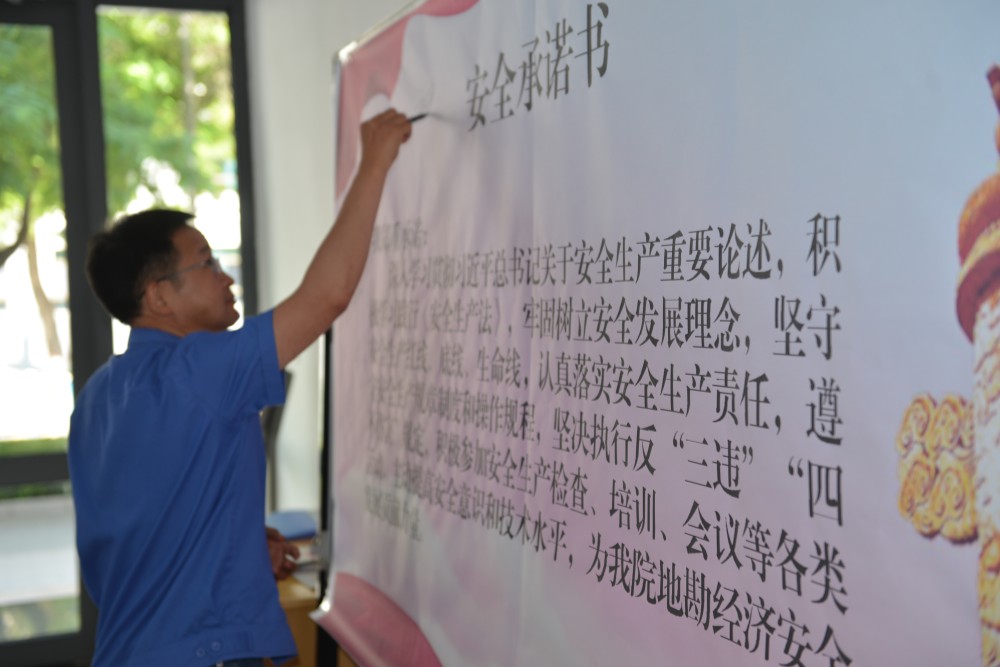 安全承诺书
深入学习贯彻习近平总书记关于安全生产重要论述，积
《安全生产法》，牢固树立安全发展理念，坚守
底线、生命线，认真落实安全生产责任，遵
制度和操作规程，坚决执行反“三违”“四
积极参加安全生产检查、培训、会议等各类
安全意识和技术水平，为我院地勘经济安全